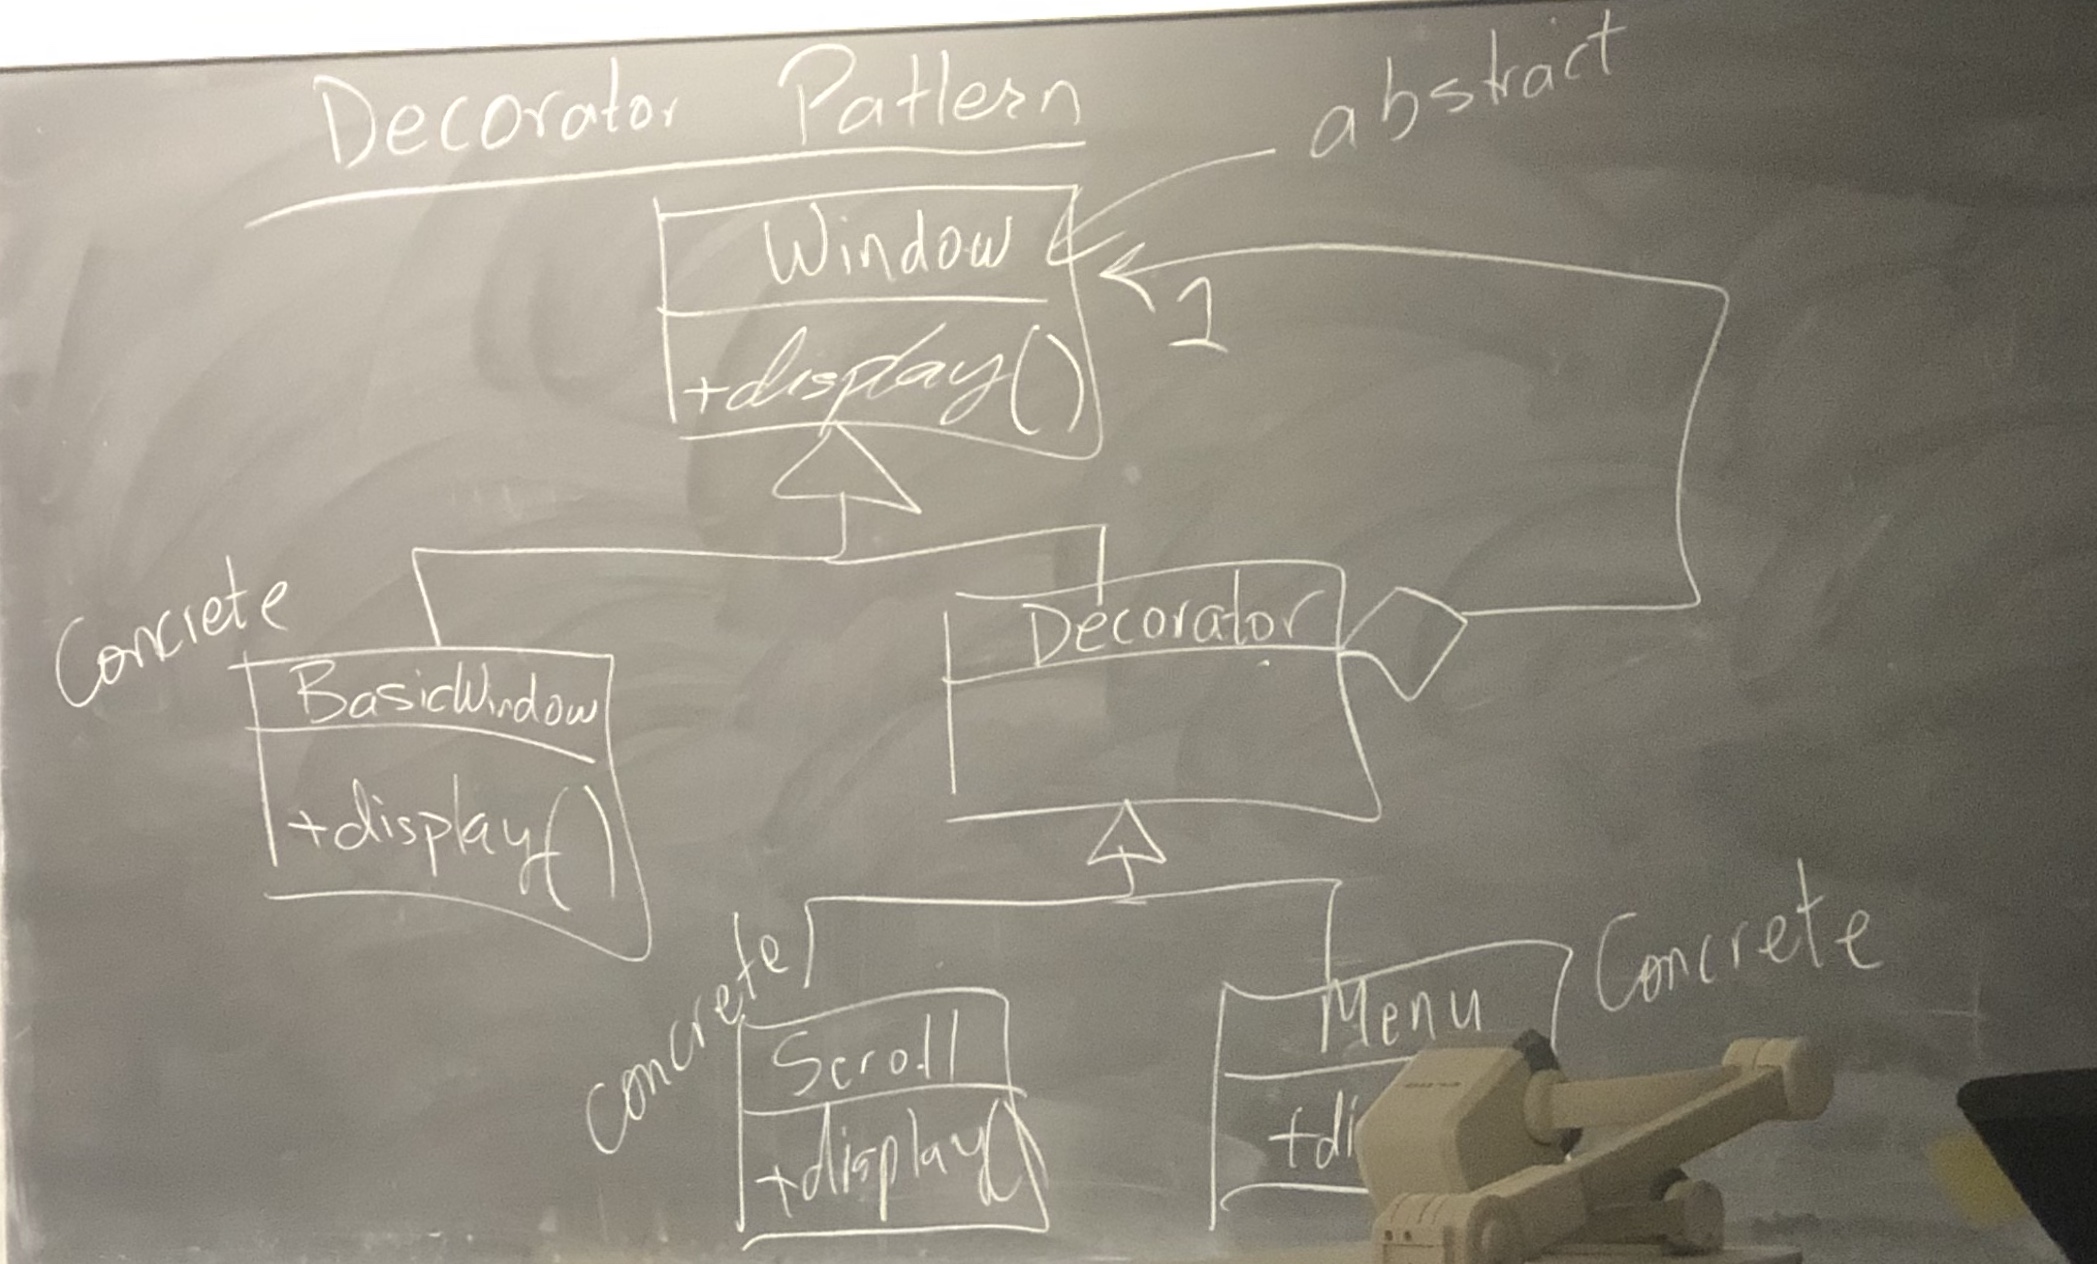 Decorator Pattern
abstract
Window
+display()
1
Concrete
BasicWindow
+display()
Decorator
concrete
Scroll
+display()
Menu
+di
Concrete